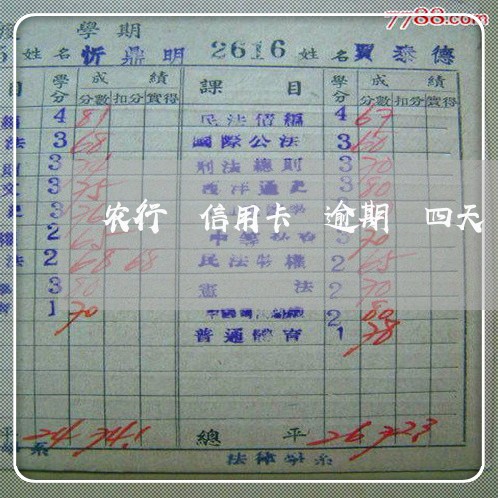 7788.com
學期
姓名 忻鼎明 2616 姓名 賈泰德
目 學分 成績 課目 學分 成績
分數 扣分 實得 分數 扣分 實得
4 81 民法債編 4 67
法 3 68 國際公法 3 60
3 刑法總則 3 70
3 75 西洋通史 3 80
农行 信用卡 逾期 四天
2 65 3 70
法 2 68 68 民法物權 2 65
3 80 憲法 2 70
1 70 2 80
普通體育 1 78
平 24 74.1 總平 26 72.3
系 法律學系